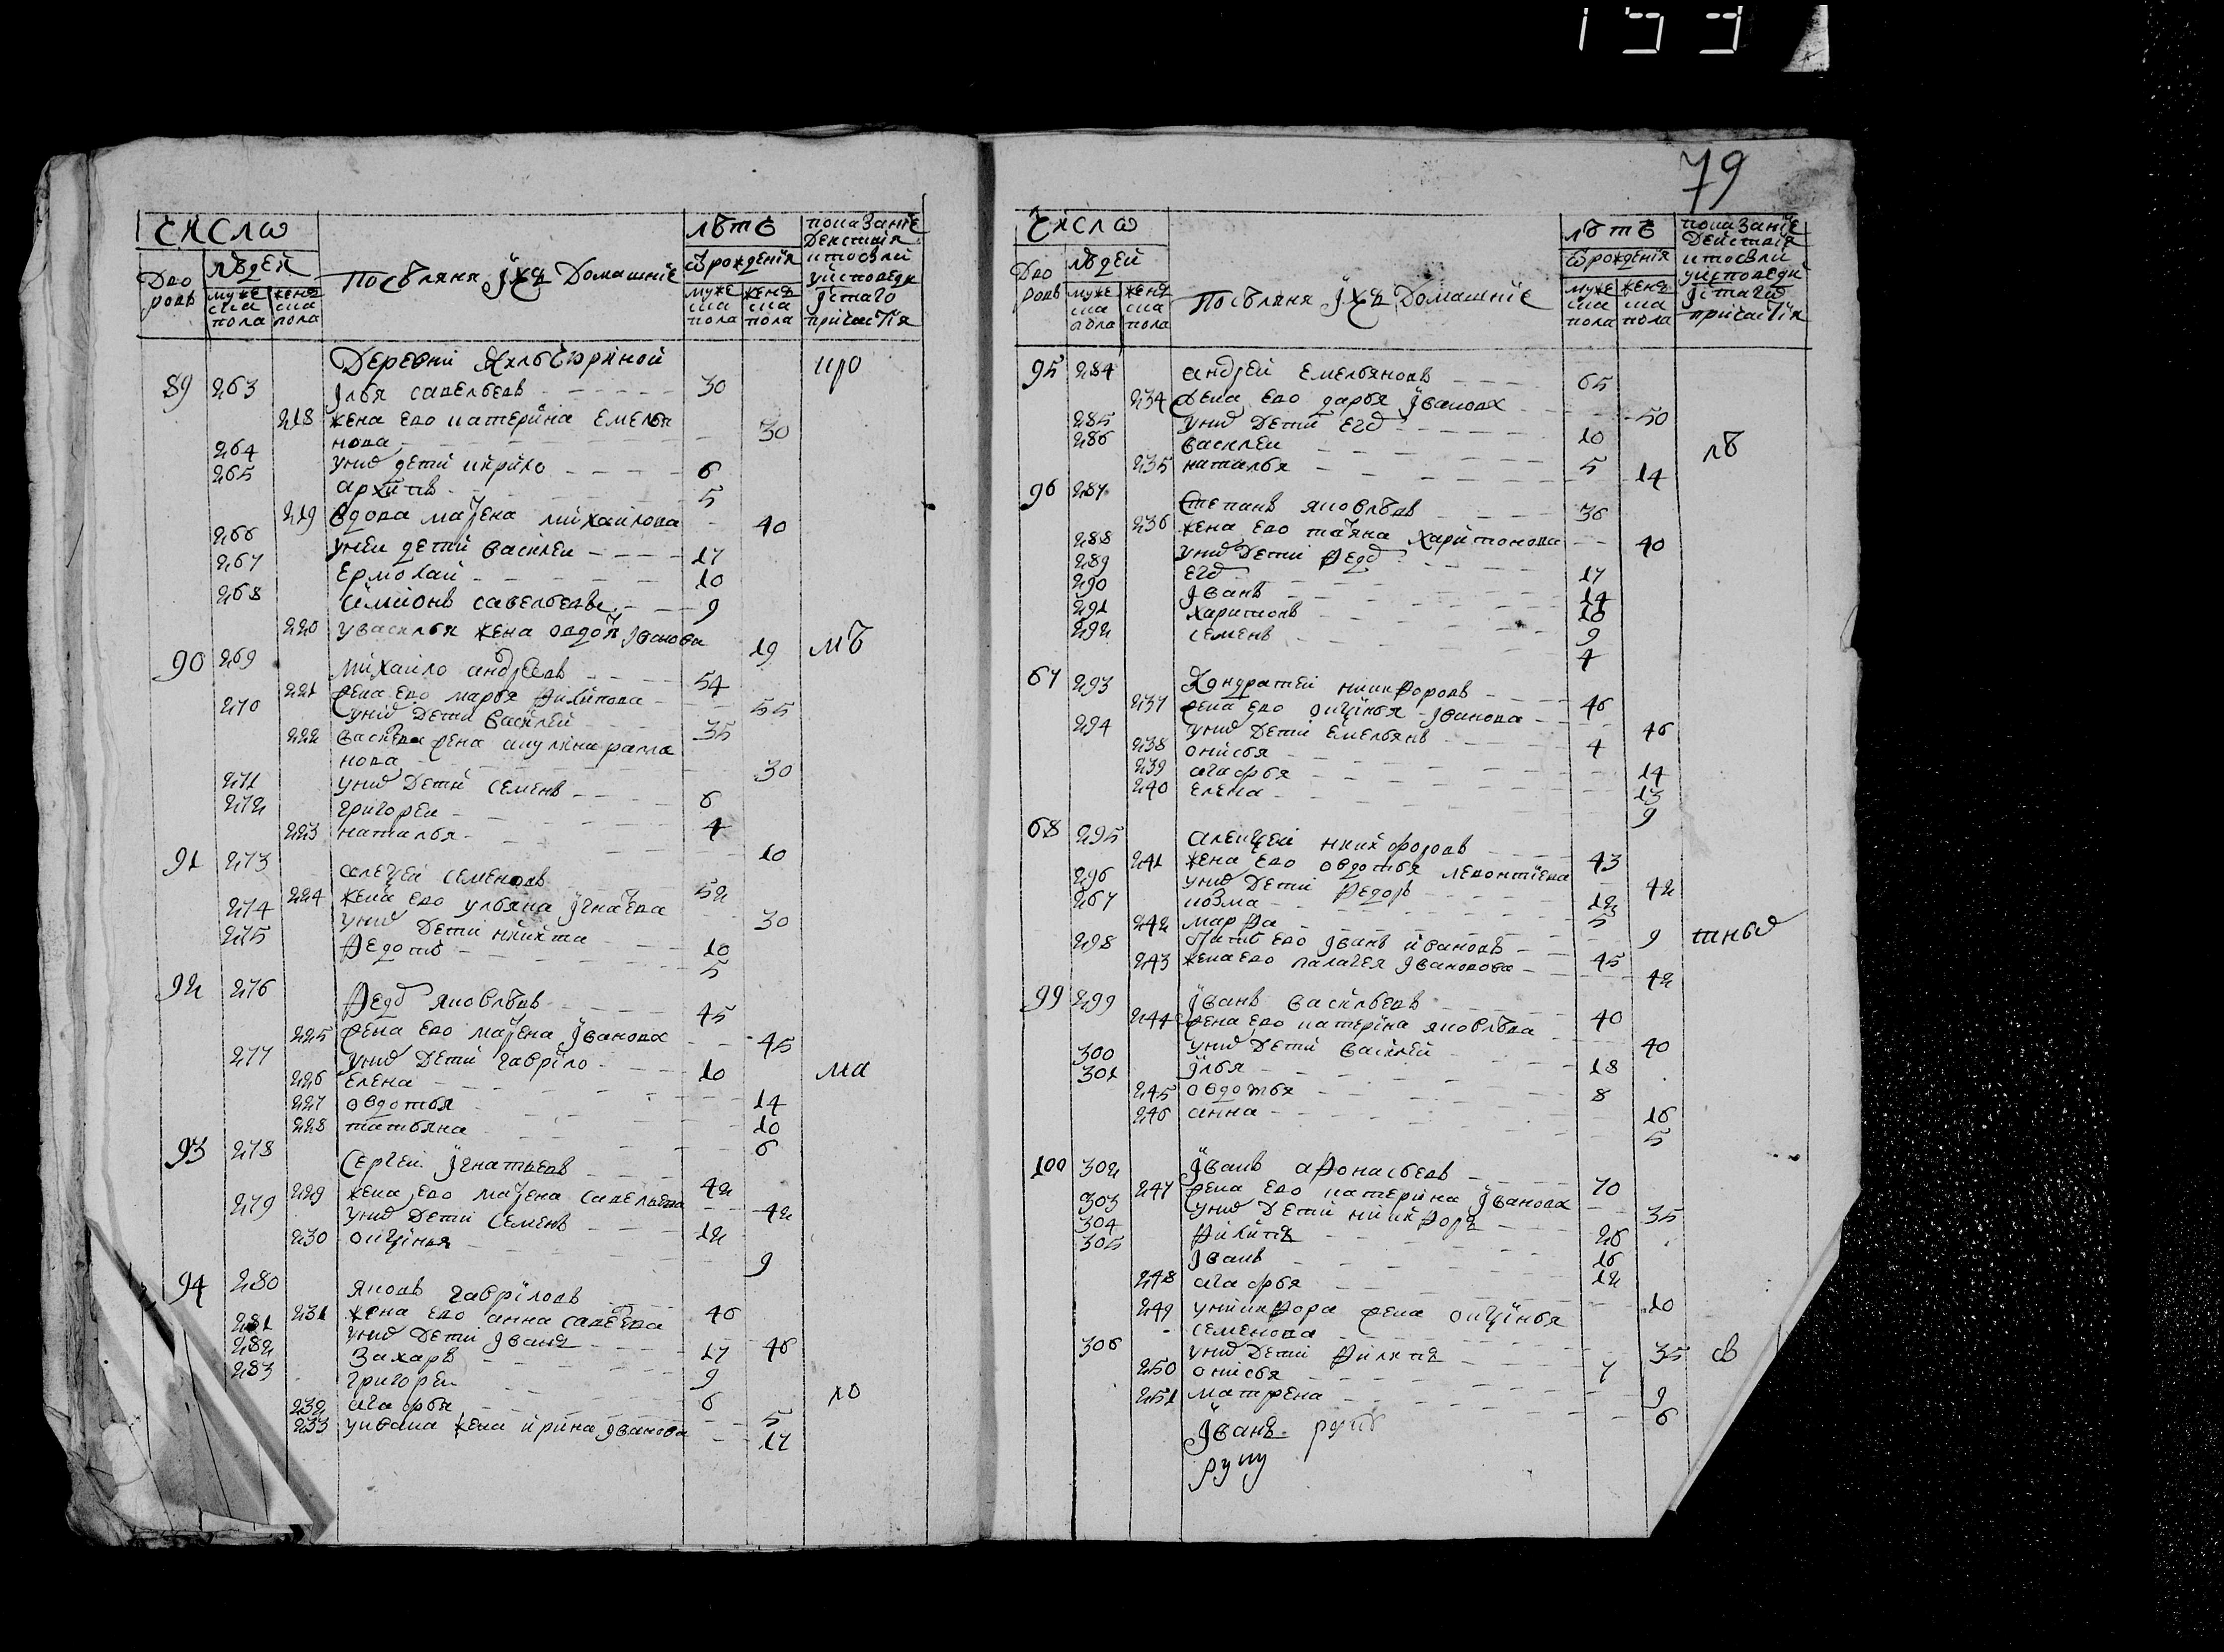 159
79
Число
Дво
ровъ
людей
муже
ска
пола
женъ
ска
пола
Посѣляня, іхъ Домашніе
лѣтъ
ѿ рожденія
муже
ска
пола
женъ
ска
пола
показаніе
Действія
кто былъ
у исповеди
і стаго
причастія
Деревни
кро
89 263 Ілья савельевъ 30
218 жена ево катерина емелья
нова 30
264 у них дети кирило 6
265 архипъ 5
219 вдова матрена михаилова 40
266 у неи дети василеи 17
267 ермолаи 10
268 симионъ савельевъ 9
220 у василья жена овдотя іванова 19
мѣ
90 269 михаило андреевъ 54
221 жена ево марья филипова 55
270 у них дети василеи 35
222 василева жена акулина рама
нова 30
271 у них дети семенъ 6
272 григореи 4
223 наталья 10
91 273 алекъсеи семеновъ 52
224 жена ево ульяна ігнатева 30
274 у них дети никита 10
275 Федотъ 5
92 276 Федоръ яковлѣвъ 45
225 жена ево матрена іванова 45
277 у них дети гаврило 10
ма
226 елена 14
227 овдотья 10
228 татьяна 6
93 278 Сергеи ігнатьевъ 42
229 жена ево матрена савельева 42
279 у них дети семенъ 12
230 оксинья 9
94 280 яковъ гавриловъ 46
231 жена ево анна савеева 46
281 у них дети іванъ 17
282 захаръ 9
283 григореи 6
хо
232 агафья 5
233 у ивана жена ирина іванова 17
Число
Дво
ровъ
людей
муже
ска
пола
женъ
ска
пола
Посѣляня іхъ Домашніе
лѣтъ
ѿ рожденія
муже
ска
пола
женъ
ска
пола
показаніе
Действія
кто были
у исповеди
і стаго
причастія
95 284 андреи емельяновъ 65
234 жена ево дарья іванова 50
285 у них дети егоръ 10
286 василеи 5
лѣ
235 наталья 14
96 287 Степанъ яковлѣвъ 36
236 жена ево татьяна харитонова 40
288 у них дети федоръ 17
289 егоръ 14
290 іванъ 10
291 харитонъ 9
292 семенъ 4
67 293 Кондратеи никифоровъ 46
237 жена ево оксинья іванова 46
294 у них дети емельянъ 4
238 онисья 14
239 агафья 13
240 елена 9
68 295 алексеи никифоровъ 43
241 жена ево овдотья левонтиева 42
296 у них дети Федоръ 12
267 козма 5
242 марфа 9
тных
298 зять ево іванъ ивановъ 45
243 жена ево палагея івановова 42
99 299 іванъ васильевъ 40
244 жена ево катерина яковлѣва 40
300 у них дети василеи 18
301 ілья 8
245 овдотья 16
246 анна 5
100 302 іванъ афонасьевъ 70
247 жена ево катерина іванова 35
303 у них дети никифоръ 26
304 Филипъ 16
305 іванъ 12
248 агафья 10
249 у никифора жена оксинья
семенова 35
св
306 у них дети Филипъ 7
250 онисья 9
251 матрена 6
Іванъ руку
руку